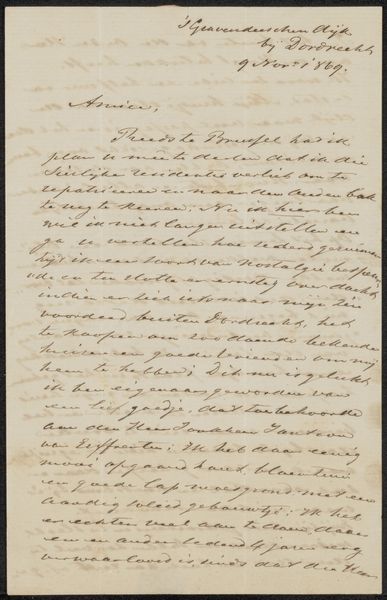 's Gravendeelschen Dijk
bij Dordrecht
9 Novr 1869.
Amice,
Reeds te Brussel had ik
plan u mede te deelen dat ik die
sierlijke residentie verliet om te
repatrieeren en naar den ouden bak
te rug te keeren. Nu ik hier ben
wil ik niet langer uitstellen en
ga u vertellen hoe
bij ik een soort van nostalgie
en ten slotte er ernstig over dacht
indien er zich iets naar mijn zin
voordeed buiten Dordrecht, het
te koopen om zoodoende bekende
huizen en goede vrienden om mij
heen te hebben; Dit nu is gelukt
ik ben eigenaar geworden van
een lief goedje, dat toebehoorde
aan den Heer
van : Ik heb daar eenig
mooi opgaand hout, bloemtuin
en goede lap moesgrond met een
aardig soliede gebouwtje: Ik heb
er echter veel aan te doen daar
een en ander sedert 4 jaren erg
verwaarloosd is, sinds dat die Heer